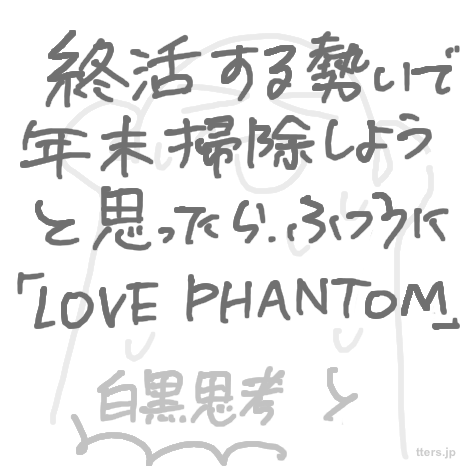 終活する勢いで
年末掃除しよう
と思ったら、ふつうに
「LOVE PHANTOM」
白黒思考 と
tters.jp